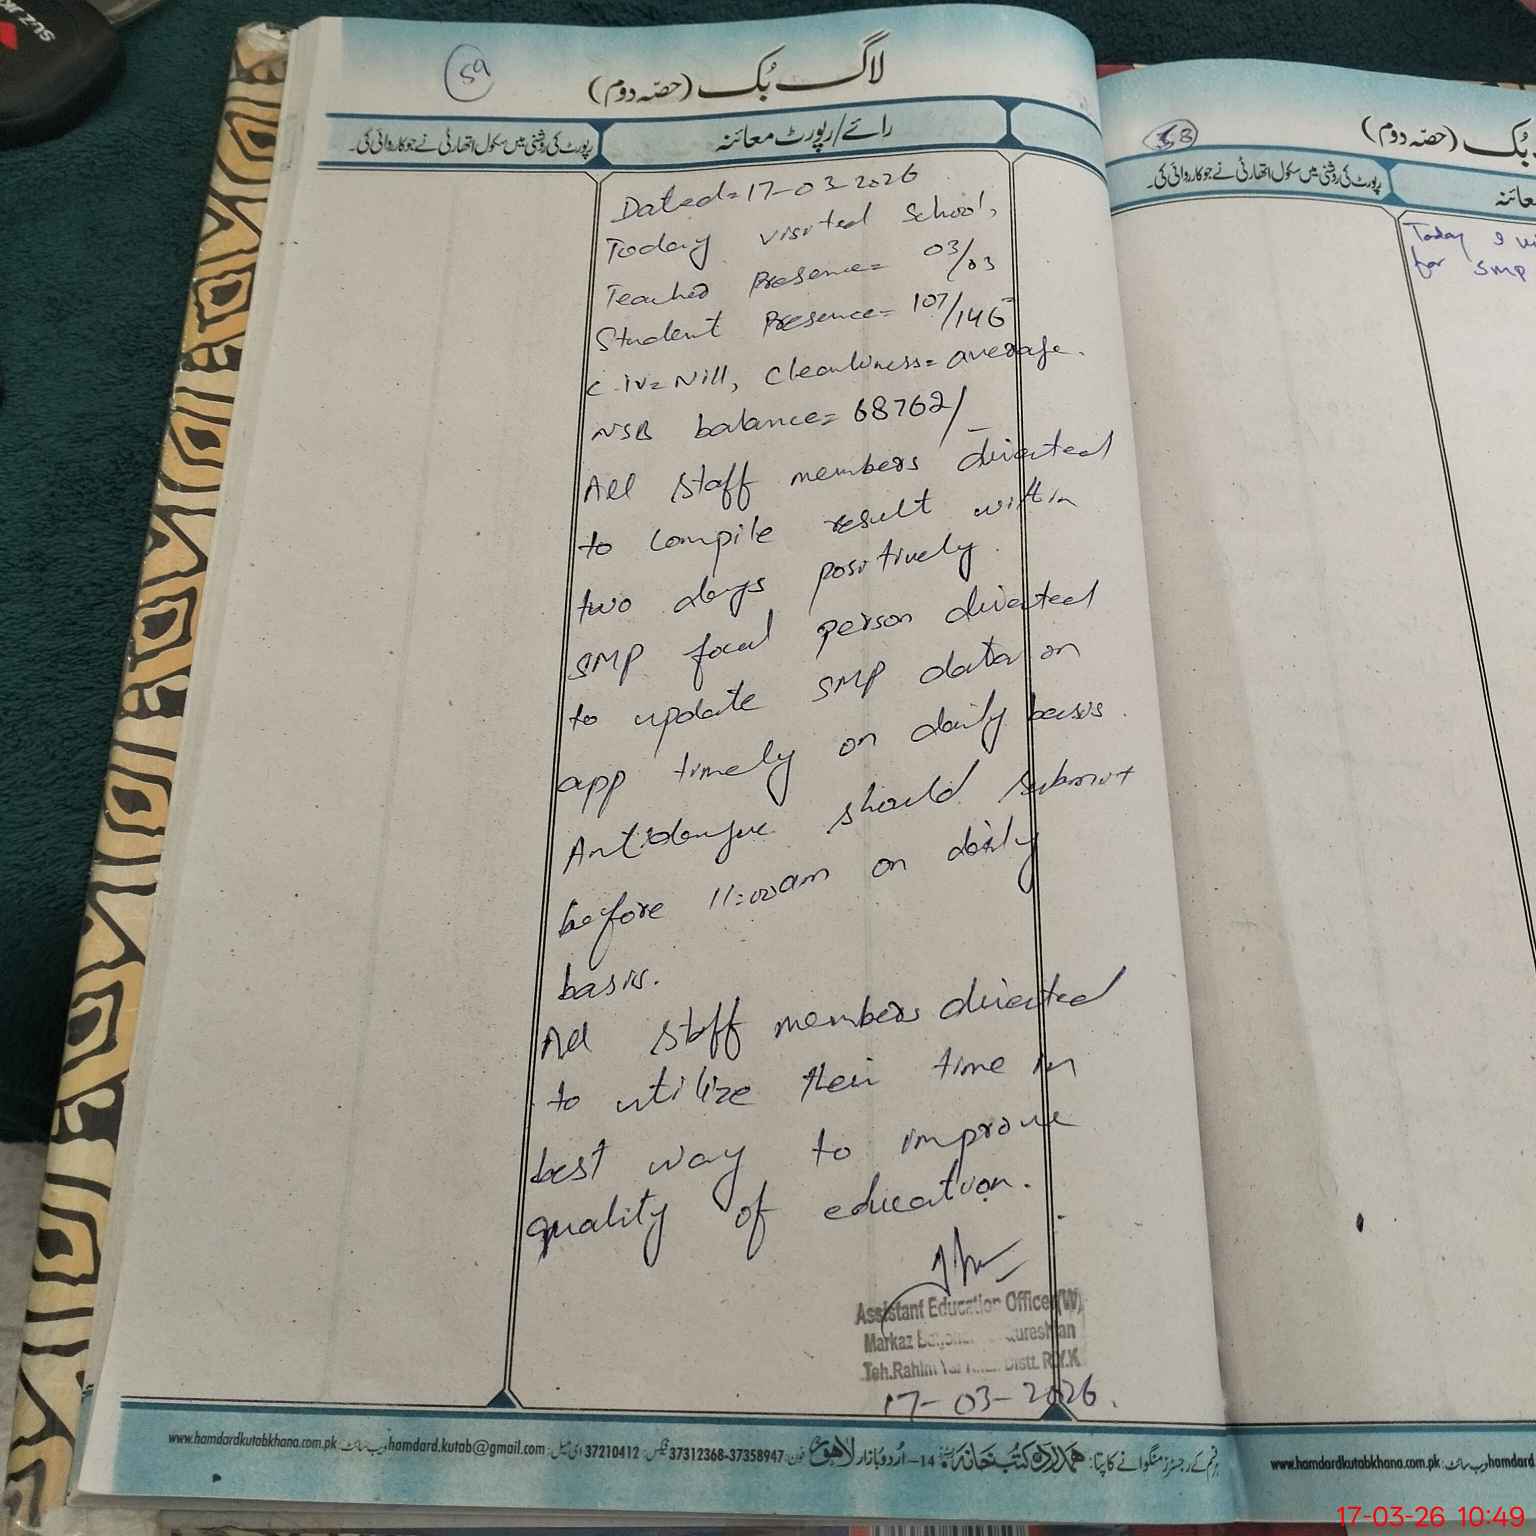 59
لاگ بُک (حصّہ دوم)
رائے/رپورٹ معائنہ
رپورٹ کی روشنی میں سکول اتھارٹی نے جو کارروائی کی۔
Dated=17-03-2026
Today visited School,
Teacher Presence= 03/03
Student Presence= 107/146
C.IV=Nill, Cleanliness=average.
NSB balance= 68762/-
All staff members directed
to compile result within
two days positively.
SMP focal person directed
to update SMP data on
app timely on daily basis.
Antidengue should submit
before 11:00am on daily
basis.
All staff members directed
to utilize their time in
best way to improve
quality of education.
Assistant Education Officer (W)
Markaz
Teh.Rahim Distt. R.Y.K
17-03-2026.
www.hamdardkutabkhana.com.pk ویب سائٹ: hamdard.kutab@gmail.com ای میل: 37210412 فیکس: 37312368-37358947 فون: ہمدرد کتب خانہ 14-اُردو بازار لاہور
بُک (حصّہ دوم)
رپورٹ کی روشنی میں سکول اتھارٹی نے جو کارروائی کی۔
Today I
for SMP
www.hamdardkutabkhana.com.pk ویب سائٹ: hamdard
17-03-26 10:49